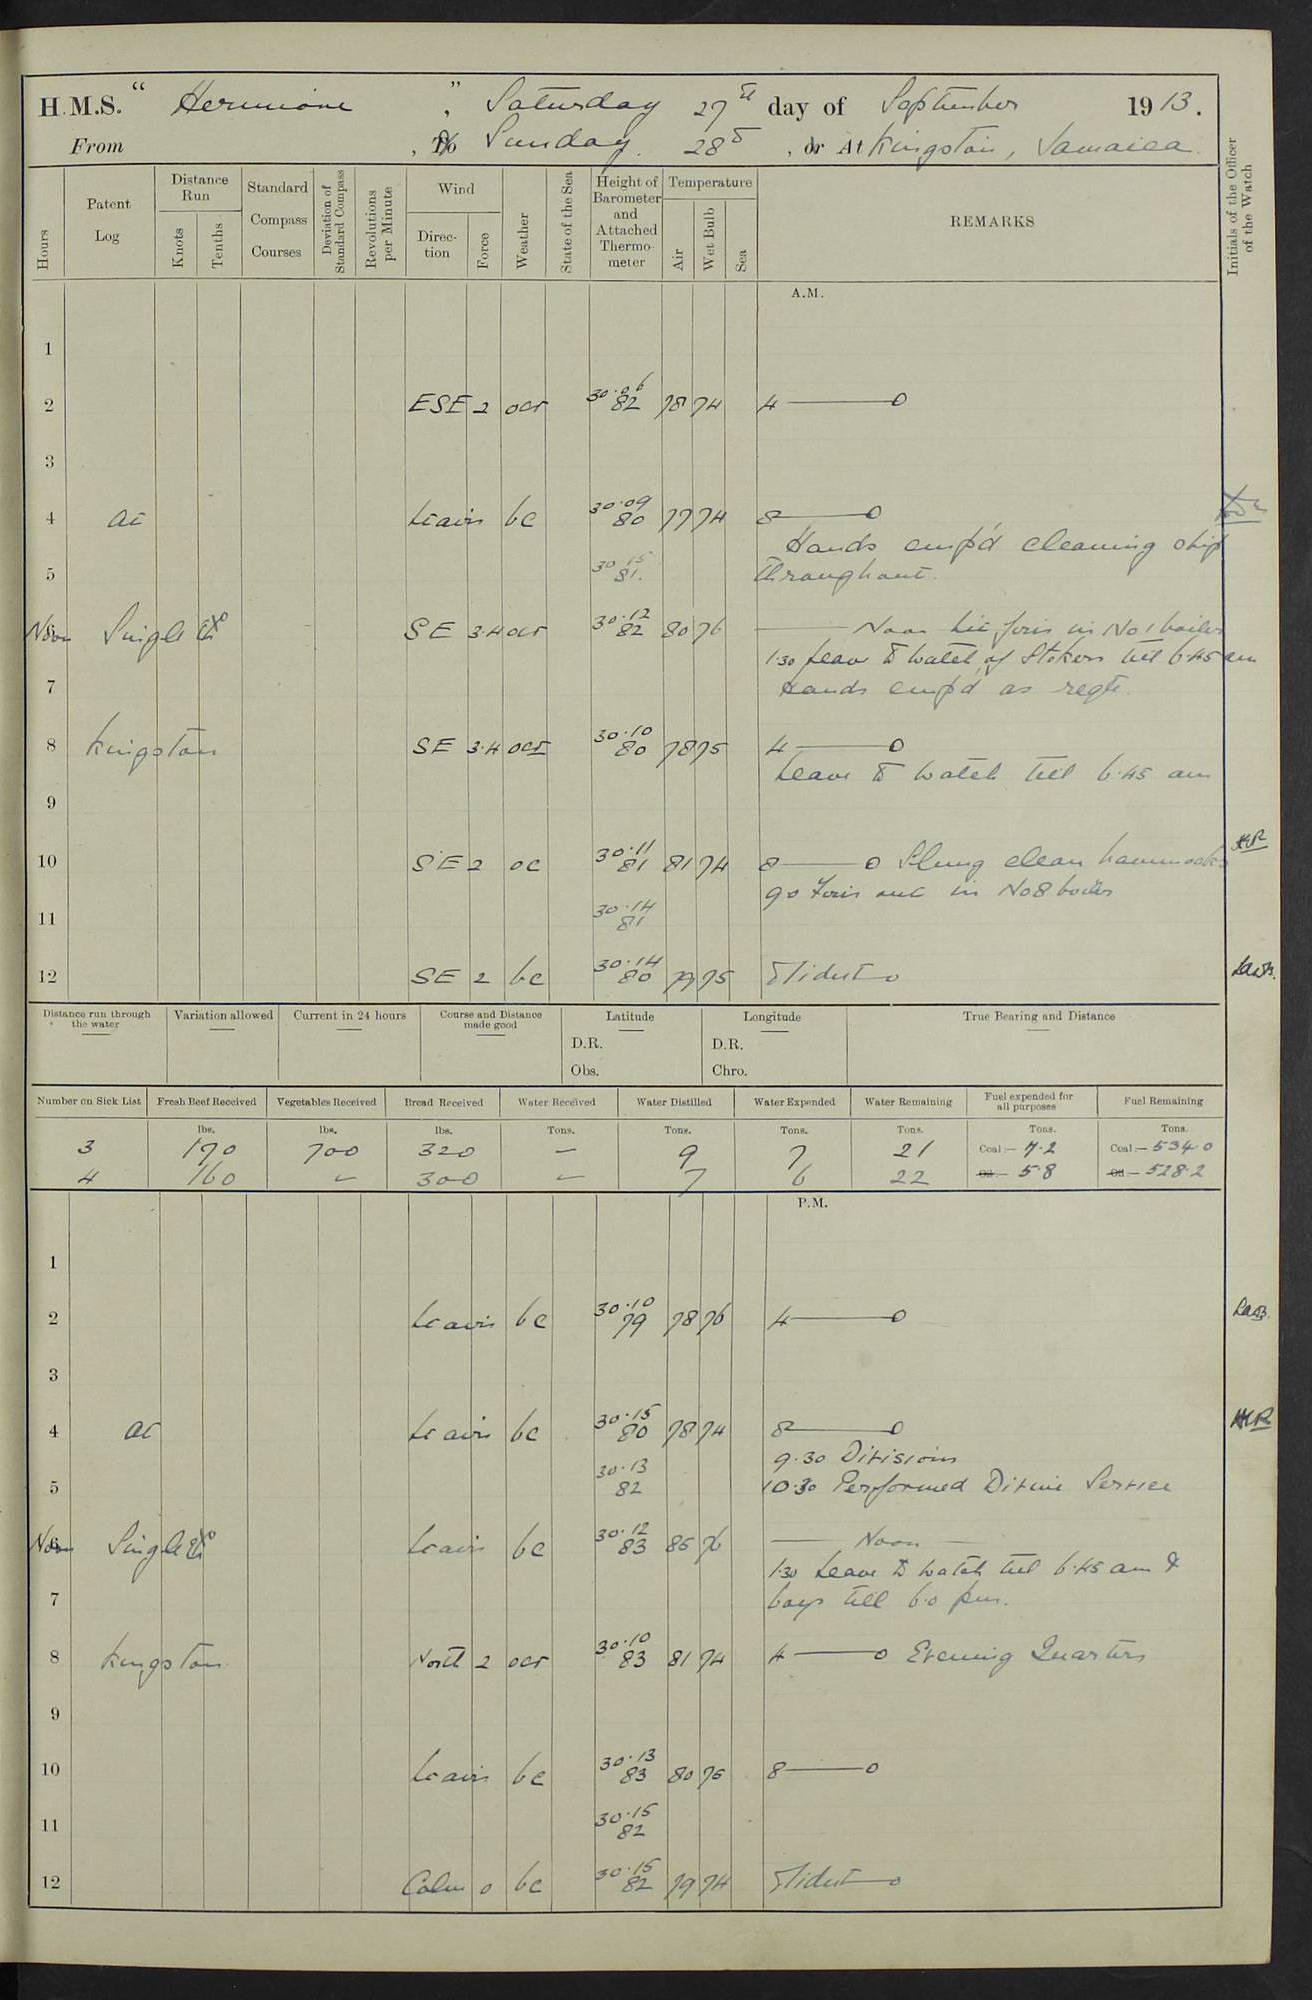 H.M.S. "Hermione", Saturday 27th day of September 1913.
From , To & Sunday. 28th , or At Kingston, Jamaica
Hours
Patent Log
Distance Run
Knots
Tenths
Standard Compass Courses
Deviation of Standard Compass
Revolutions per Minute
Wind
Direction
Force
Weather
State of the Sea
Height of Barometer and Attached Thermometer
Temperature
Air
Wet Bulb
Sea
REMARKS
Initials of the Officer of the Watch
A.M.
1
2 ESE 2 ocr 30.06 82 78 74 4 —— 0
3
4 at Lt airs bc 30.09 80 77 74 8 —— 0
Hands emp'd cleaning ship
5 30.15 81. throughout.
Noon Single Ar 6 SE 3.4 ocr 30.12 82 80 76 —— Noon Lit fires in No 1 boiler
1.30 Leave to watch of Stokers till 6.45 am
7 Hands emp'd as reqte.
8 Kingston SE 3.4 ocr 30.10 80 78 75 4 —— 0
Leave to watch till 6.45 am
9
10 SE 2 oc 30.11 81 81 74 8 —— 0 Slung clean hammocks HR
9.0 Fires out in No 8 boiler
11 30.14 81
12 SE 2 bc 30.14 80 79 75 Midnt —— 0
Distance run through the water
Variation allowed
Current in 24 hours
Course and Distance made good
Latitude
D.R.
Obs.
Longitude
D.R.
Chro.
True Bearing and Distance
Number on Sick List
Fresh Beef Received
Vegetables Received
Bread Received
Water Received
Water Distilled
Water Expended
Water Remaining
Fuel expended for all purposes
Fuel Remaining
lbs. lbs. lbs. Tons. Tons. Tons. Tons. Tons. Tons.
3 170 700 320 - 9 7 21 Coal:- 7.2 Coal:- 534.0
4 160 - 300 - 7 6 22 Oil:- 5.8 Oil:- 528.2
P.M.
1
2 Lt airs bc 30.10 79 78 76 4 —— 0
3
4 at Lt airs bc 30.15 80 78 74 8 —— 0 HR
9.30 Divisions
30.13
5 82 10.30 Performed Divine Service
Noon Single Ar 6 Lt airs bc 30.12 83 85 76 —— Noon ——
1.30 Leave to watch till 6.45 am &
7 boys till 6.0 pm.
8 Kingston North 2 ocr 30.10 83 81 74 4 —— 0 Evening Quarters
9
10 Lt airs bc 30.13 83 80 75 8 —— 0
11 30.15 82
12 Calm 0 bc 30.15 82 79 74 Midnt —— 0